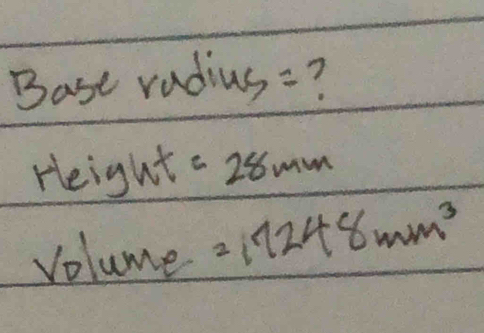 Base radius = ?
Height = 28mm
Volume = 17248mm³